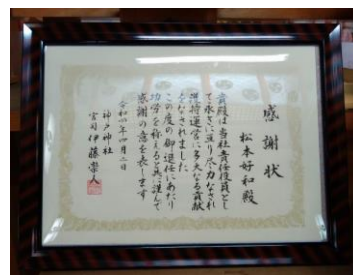 感謝状
松本好和殿
貴殿は当社責任役員とし
て永きに亘り尽力なされ
維持運営に多大なる貢献
をなされました
この度の御退任にあたり
功労を称えると共に謹んで
感謝の意を表します
令和四年四月二日
神戸神社
宮司伊藤